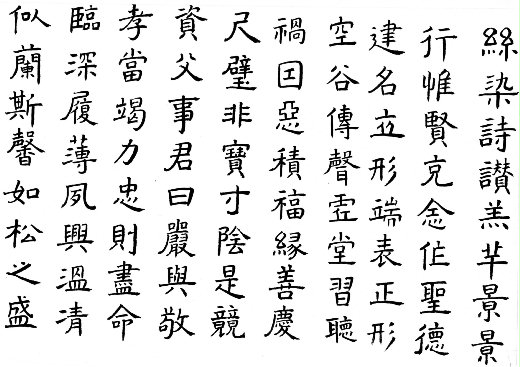 絲染詩讃羔羊景景
行惟賢克念作聖德
建名立形端表正形
空谷傳聲虛堂習聽
禍因惡積福緣善慶
尺璧非寶寸陰是競
資父事君曰嚴與敬
孝當竭力忠則盡命
臨深履薄夙興溫凊
似蘭斯馨如松之盛